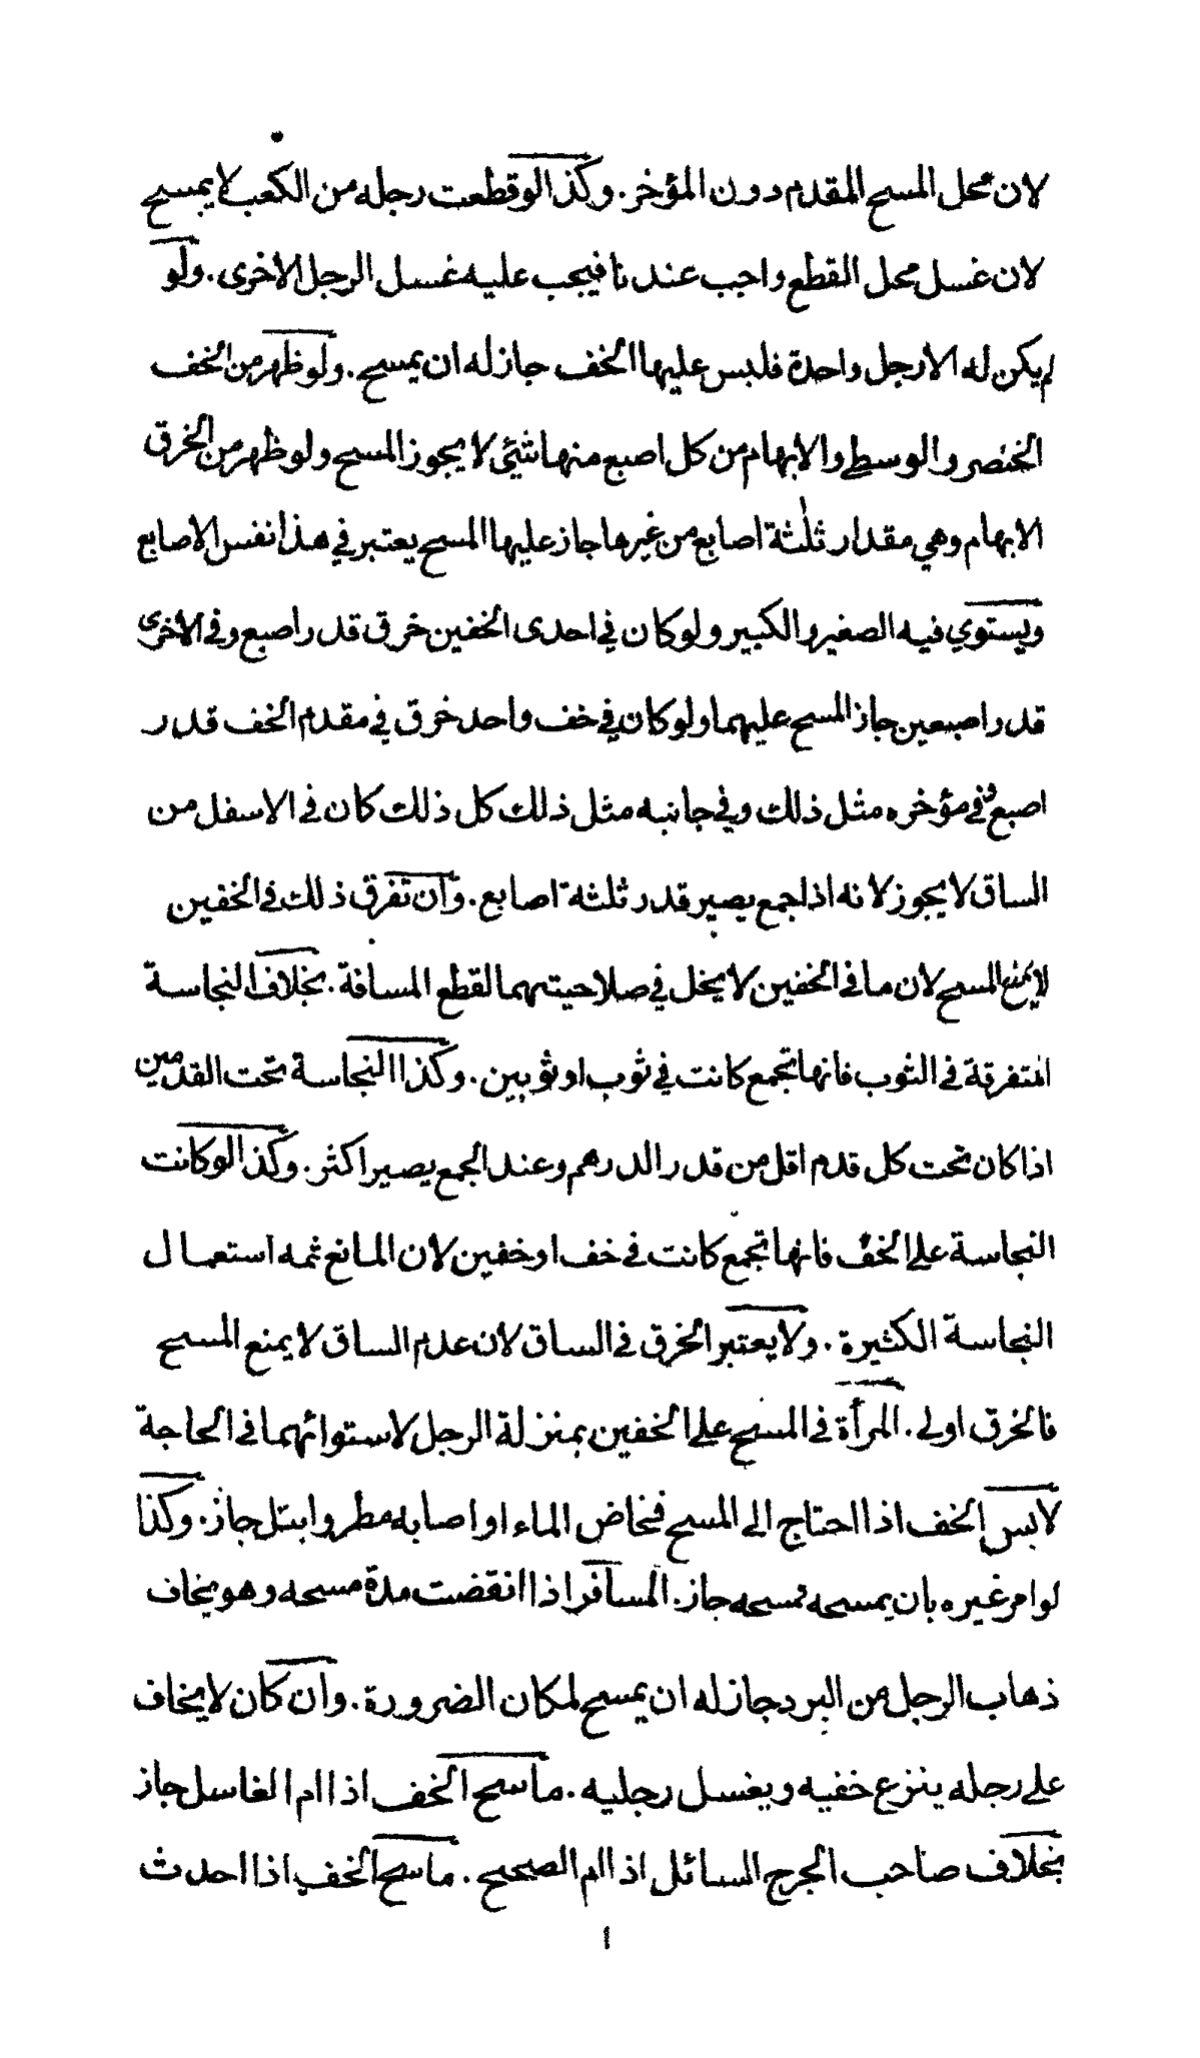 لان محل المسح المقدم دون المؤخر. وكذا لو قطعت رجله من الكعب لا يمسح
لان غسل محل القطع واجب عندنا فيجب عليه غسل الرجل الاخرى. ولو
لم يكن له الا رجل واحدة فلبس عليها الخف جاز له ان يمسح. ولو ظهر من الخف
الخنصر والوسطى والابهام من كل اصبع منها شئي لا يجوز المسح ولو ظهر من الخرق
الابهام وهي مقدار ثلثة اصابع من غيرها جاز عليها المسح يعتبر في هذا نفس الاصابع
ويستوي فيه الصغير والكبير ولو كان في احدى الخفين خرق قدر اصبع وفي الاخرى
قدر اصبعين جاز المسح عليهما ولو كان في خف واحد خرق في مقدم الخف قدر
اصبع وفي مؤخره مثل ذلك وفي جانبه مثل ذلك كل ذلك كان في الاسفل من
الساق لا يجوز لانه اذا جمع يصير قدر ثلثة اصابع. وان تفرق ذلك في الخفين
لا يمنع المسح لان ما في الخفين لا يخل في صلاحيتهما لقطع المسافة. بخلاف النجاسة
المتفرقة في الثوب فانها تجمع كانت في ثوب او ثوبين. وكذا النجاسة تحت القدمين
اذا كان تحت كل قدم اقل من قدر الدرهم وعند الجمع يصير اكثر. وكذا لو كانت
النجاسة على الخف فانها تجمع كانت في خف او خفين لان المانع ثمه استعمال
النجاسة الكثيرة. ولا يعتبر الخرق في الساق لان عدم الساق لا يمنع المسح
فالخرق اولى. المرأة في المسح على الخفين بمنزلة الرجل لاستوائهما في الحاجة
لابس الخف اذا احتاج الى المسح فخاض الماء او اصابه مطر وابتل جاز. وكذا
لو امر غيره بان يمسحه فمسحه جاز. المسافر اذا انقضت مدة مسحه وهو يخاف
ذهاب الرجل من البرد جاز له ان يمسح لمكان الضرورة. وان كان لا يخاف
على رجله ينزع خفيه ويغسل رجليه. ماسح الخف اذا ام الغاسل جاز
بخلاف صاحب الجرح السائل اذا ام الصحيح. ماسح الخف اذا احدث
١